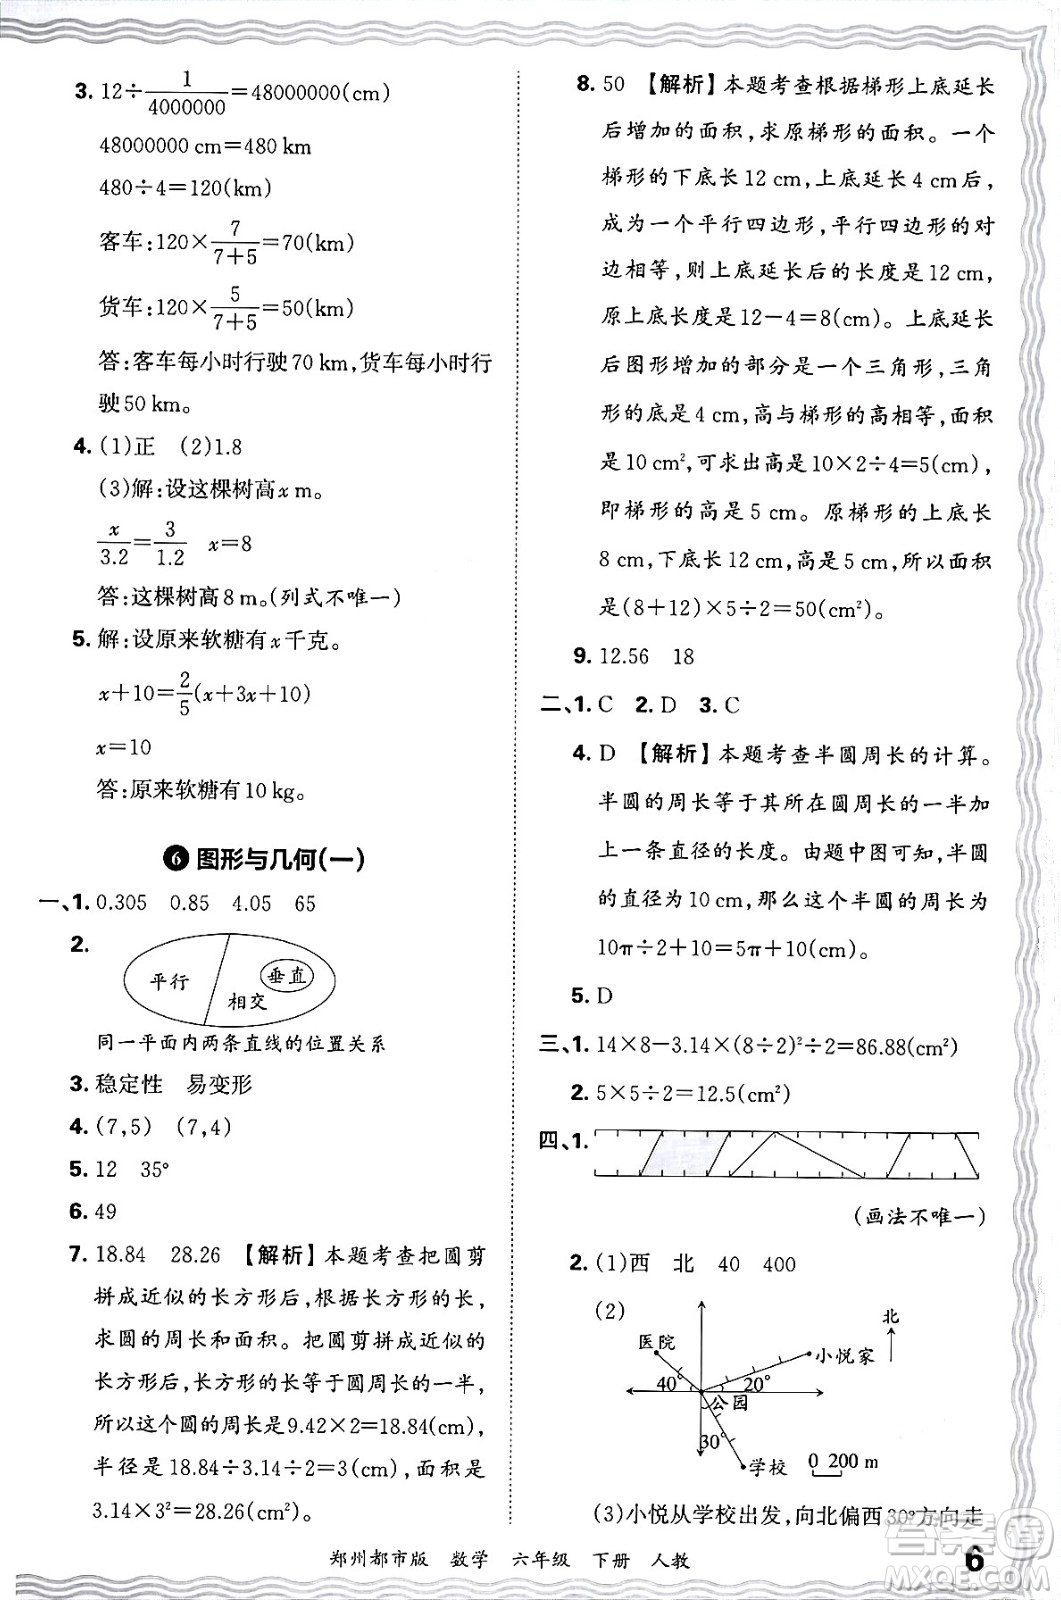 3. 12÷1/4000000=48000000(cm)
48000000 cm=480 km
480÷4=120(km)
客车:120×7/(7+5)=70(km)
货车:120×5/(7+5)=50(km)
答:客车每小时行驶70 km,货车每小时行
驶50 km。
4. (1)正 (2)1.8
(3)解:设这棵树高x m。
x/3.2=3/1.2 x=8
答:这棵树高8 m。(列式不唯一)
5. 解:设原来软糖有x千克。
x+10=2/5(x+3x+10)
x=10
答:原来软糖有10 kg。
6 图形与几何(一)
一、1. 0.305 0.85 4.05 65
2.
平行
垂直
相交
同一平面内两条直线的位置关系
3. 稳定性 易变形
4. (7,5) (7,4)
5. 12 35°
6. 49
7. 18.84 28.26 【解析】本题考查把圆剪
拼成近似的长方形后,根据长方形的长,
求圆的周长和面积。把圆剪拼成近似的
长方形后,长方形的长等于圆周长的一半,
所以这个圆的周长是9.42×2=18.84(cm),
半径是18.84÷3.14÷2=3(cm),面积是
3.14×3²=28.26(cm²)。
8. 50 【解析】本题考查根据梯形上底延长
后增加的面积,求原梯形的面积。一个
梯形的下底长12 cm,上底延长4 cm后,
成为一个平行四边形,平行四边形的对
边相等,则上底延长后的长度是12 cm,
原上底长度是12-4=8(cm)。上底延长
后图形增加的部分是一个三角形,三角
形的底是4 cm,高与梯形的高相等,面积
是10 cm²,可求出高是10×2÷4=5(cm),
即梯形的高是5 cm。原梯形的上底长
8 cm,下底长12 cm,高是5 cm,所以面积
是(8+12)×5÷2=50(cm²)。
9. 12.56 18
二、1. C 2. D 3. C
4. D 【解析】本题考查半圆周长的计算。
半圆的周长等于其所在圆周长的一半加
上一条直径的长度。由题中图可知,半圆
的直径为10 cm,那么这个半圆的周长为
10π÷2+10=5π+10(cm)。
5. D
三、1. 14×8-3.14×(8÷2)²÷2=86.88(cm²)
2. 5×5÷2=12.5(cm²)
四、1.
(画法不唯一)
2. (1)西 北 40 400
(2)
北
医院
小悦家
40°
20°
公园
30°
学校
0 200 m
(3)小悦从学校出发,向北偏西30°方向走
郑州都市版 数学 六年级 下册 人教
6
答案圈
MXQE.COM